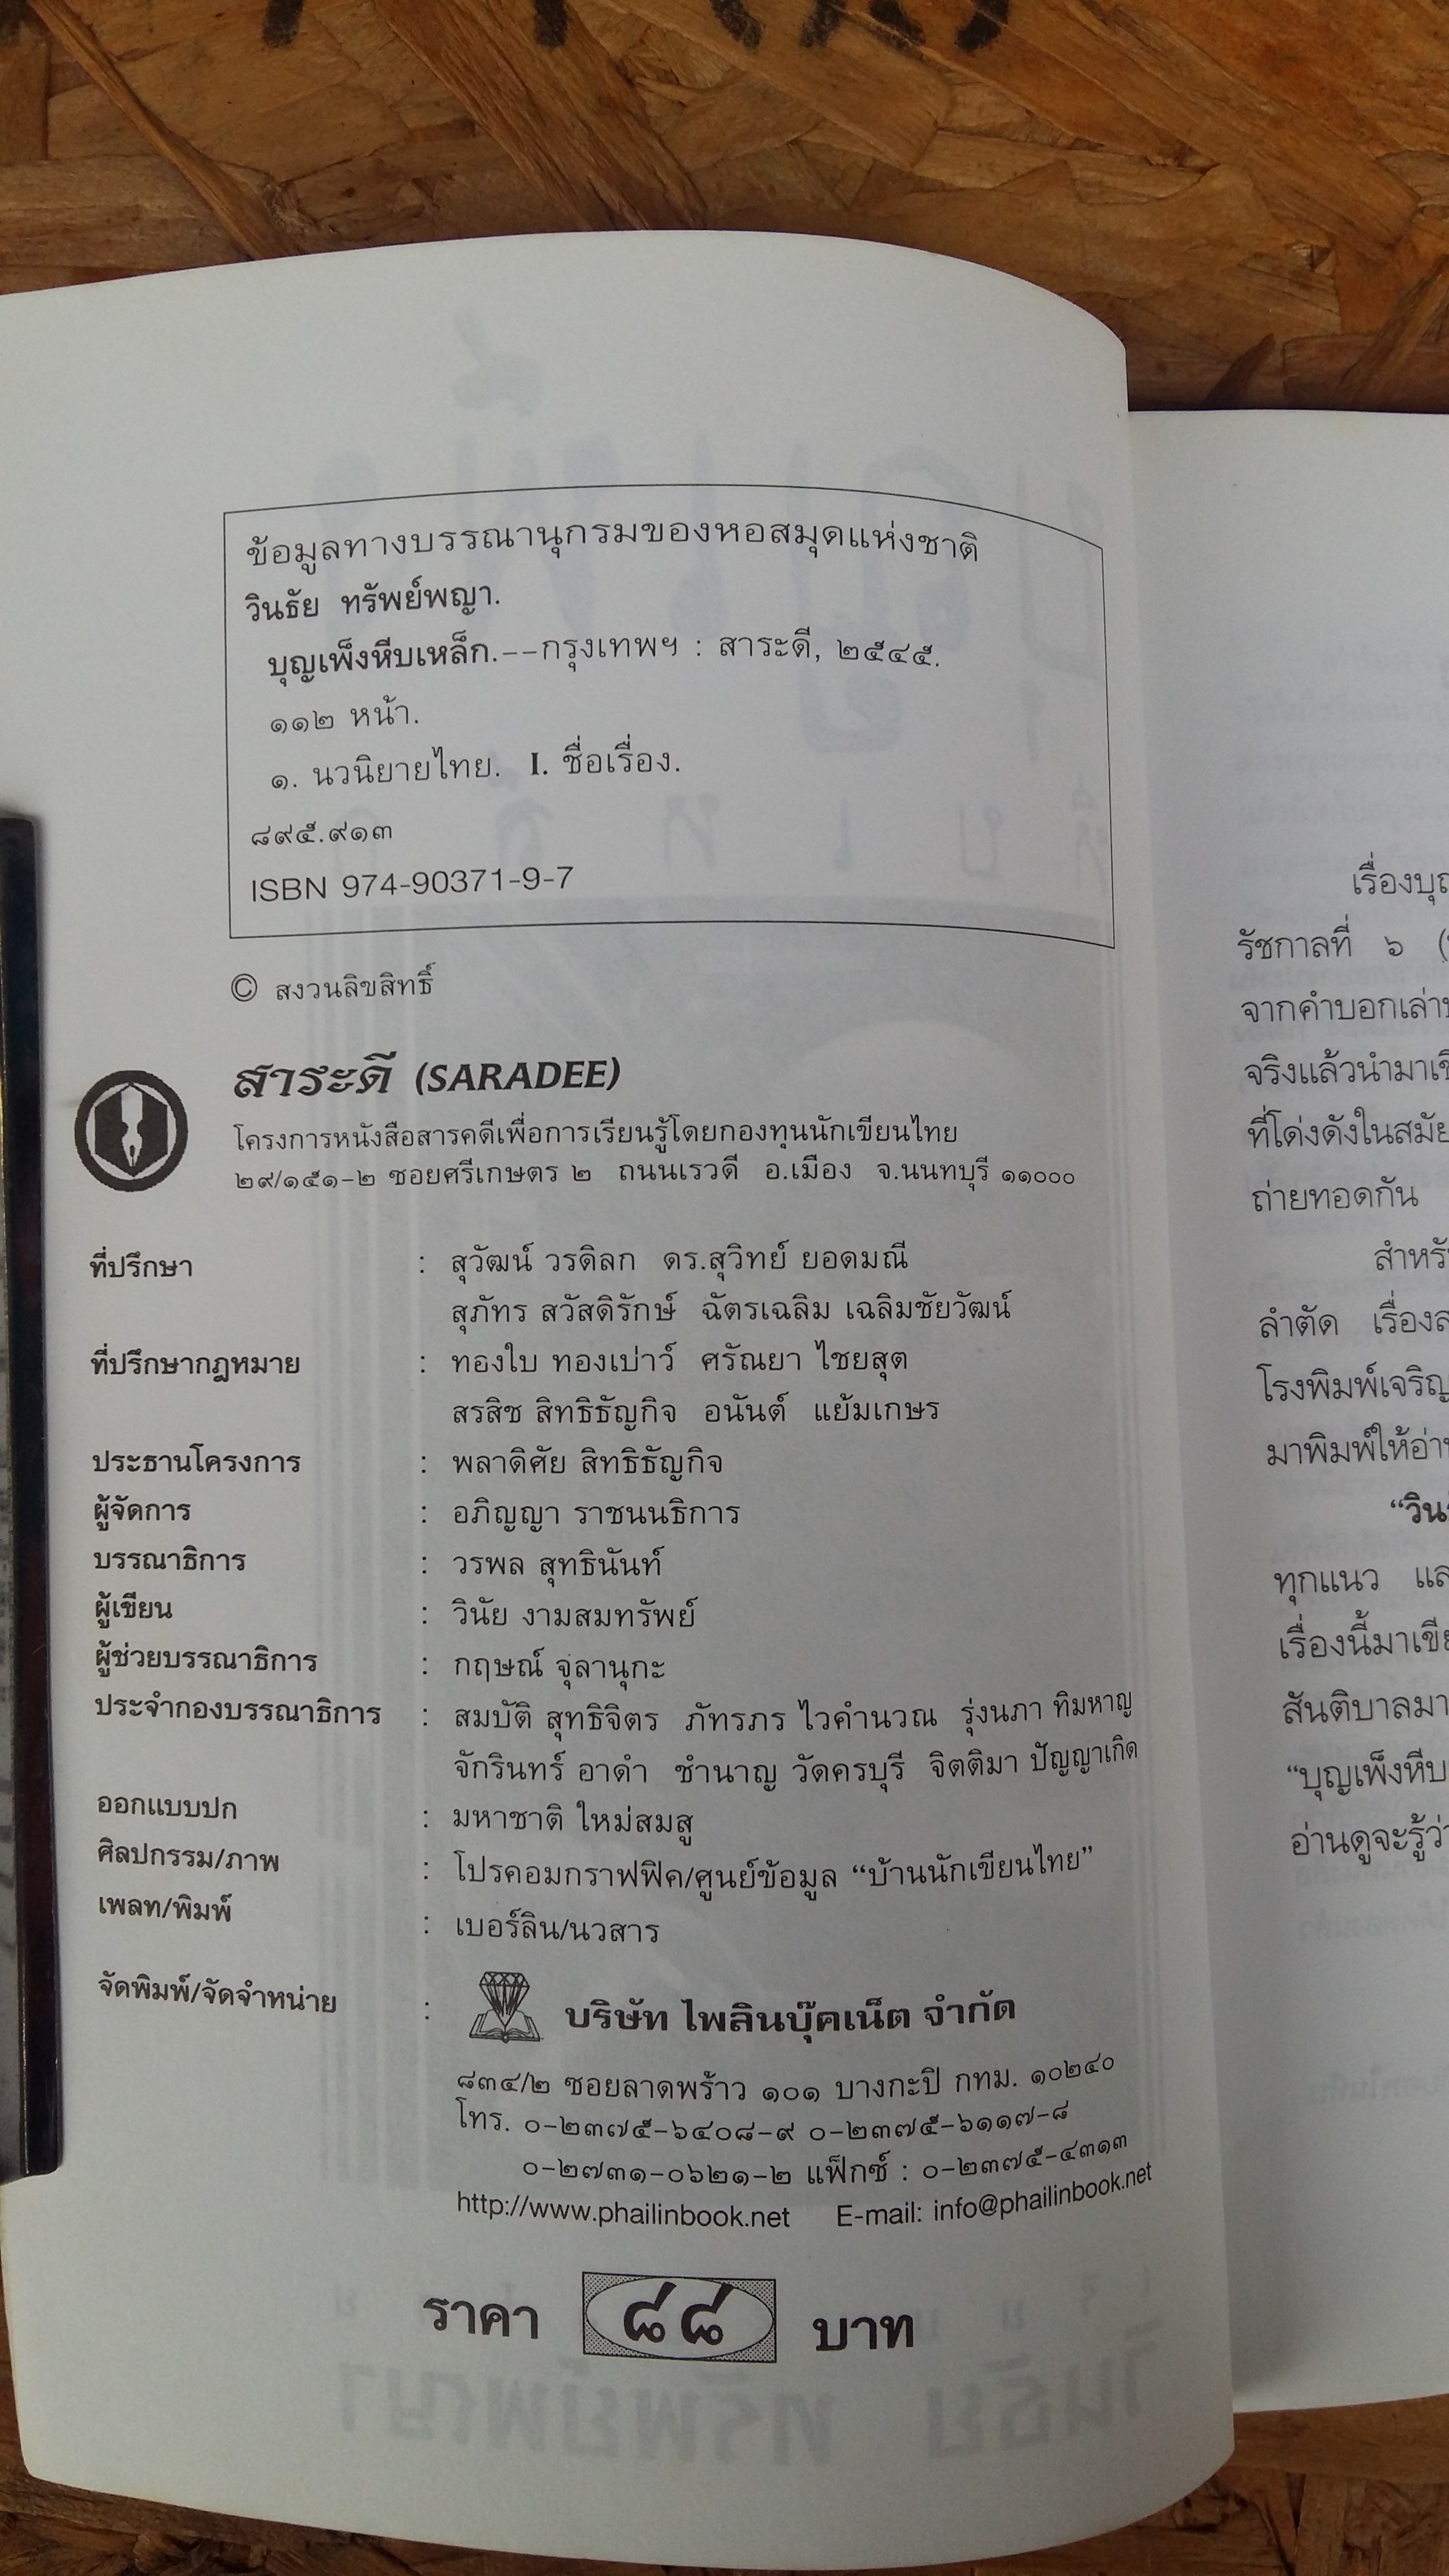 ข้อมูลทางบรรณานุกรมของหอสมุดแห่งชาติ
วินธัย ทรัพย์พญา.
บุญเพ็งหีบเหล็ก.--กรุงเทพฯ : สาระดี, ๒๕๔๕.
๑๑๒ หน้า.
๑. นวนิยายไทย. I. ชื่อเรื่อง.
๘๙๕.๙๑๓
ISBN 974-90371-9-7
© สงวนลิขสิทธิ์
สาระดี (SARADEE)
โครงการหนังสือสารคดีเพื่อการเรียนรู้โดยกองทุนนักเขียนไทย
๒๙/๑๕๑-๒ ซอยศรีเกษตร ๒ ถนนเรวดี อ.เมือง จ.นนทบุรี ๑๑๐๐๐
ที่ปรึกษา : สุวัฒน์ วรดิลก ดร.สุวิทย์ ยอดมณี
สุภัทร สวัสดิรักษ์ ฉัตรเฉลิม เฉลิมชัยวัฒน์
ที่ปรึกษากฎหมาย : ทองใบ ทองเปาว์ ศรัณยา ไชยสุต
สรสิช สิทธิธัญกิจ อนันต์ แย้มเกษร
ประธานโครงการ : พลาดิศัย สิทธิธัญกิจ
ผู้จัดการ : อภิญญา ราชนนธิการ
บรรณาธิการ : วรพล สุทธินันท์
ผู้เขียน : วินัย งามสมทรัพย์
ผู้ช่วยบรรณาธิการ : กฤษณ์ จุลานุกะ
ประจำกองบรรณาธิการ : สมบัติ สุทธิจิตร ภัทรภร ไวคำนวณ รุ่งนภา ทิมหาญ
จักรินทร์ อาดำ ชำนาญ วัดครบุรี จิตติมา ปัญญาเกิด
ออกแบบปก : มหาชาติ ใหม่สมสู
ศิลปกรรม/ภาพ : โปรคอมกราฟฟิค/ศูนย์ข้อมูล “บ้านนักเขียนไทย”
เพลท/พิมพ์ : เบอร์ลิน/นวสาร
จัดพิมพ์/จัดจำหน่าย : บริษัท ไพลินบุ๊คเน็ต จำกัด
๘๓๔/๒ ซอยลาดพร้าว ๑๐๑ บางกะปิ กทม. ๑๐๒๔๐
โทร. ๐-๒๓๗๕-๖๔๐๘-๙ ๐-๒๓๗๕-๖๑๑๗-๘
๐-๒๗๓๑-๐๖๒๑-๒ แฟ็กซ์ : ๐-๒๓๗๕-๔๓๑๓
http://www.phailinbook.net E-mail: info@phailinbook.net
ราคา ๘๘ บาท
เรื่องบุญ
รัชกาลที่ ๖ (
จากคำบอกเล่า
จริงแล้วนำมาเ
ที่โด่งดังในสมัย
ถ่ายทอดกัน
สำหรั
ลำตัด เรื่อง
โรงพิมพ์เจริญ
มาพิมพ์ให้อ่า
“วิน
ทุกแนว แล
เรื่องนี้มาเขีย
สันติบาลมา
“บุญเพ็งหีบ
อ่านดูจะรู้ว่